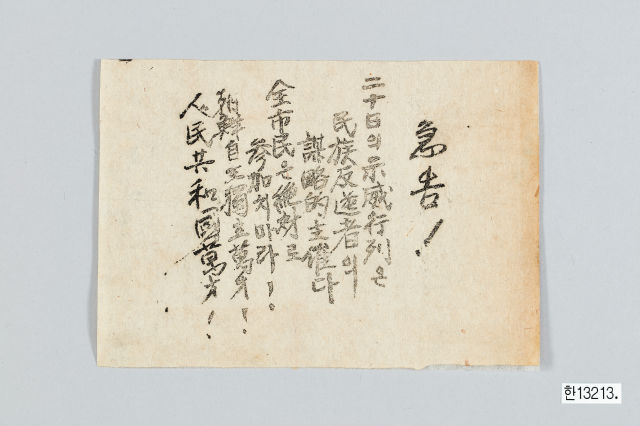 急告!
二十日의 示威行列은
民族反逆者의
謀略的主催다
全市民은 絶対로
参加치마라!
朝鮮自主獨立萬才!
人民共和國萬才!
한13213.